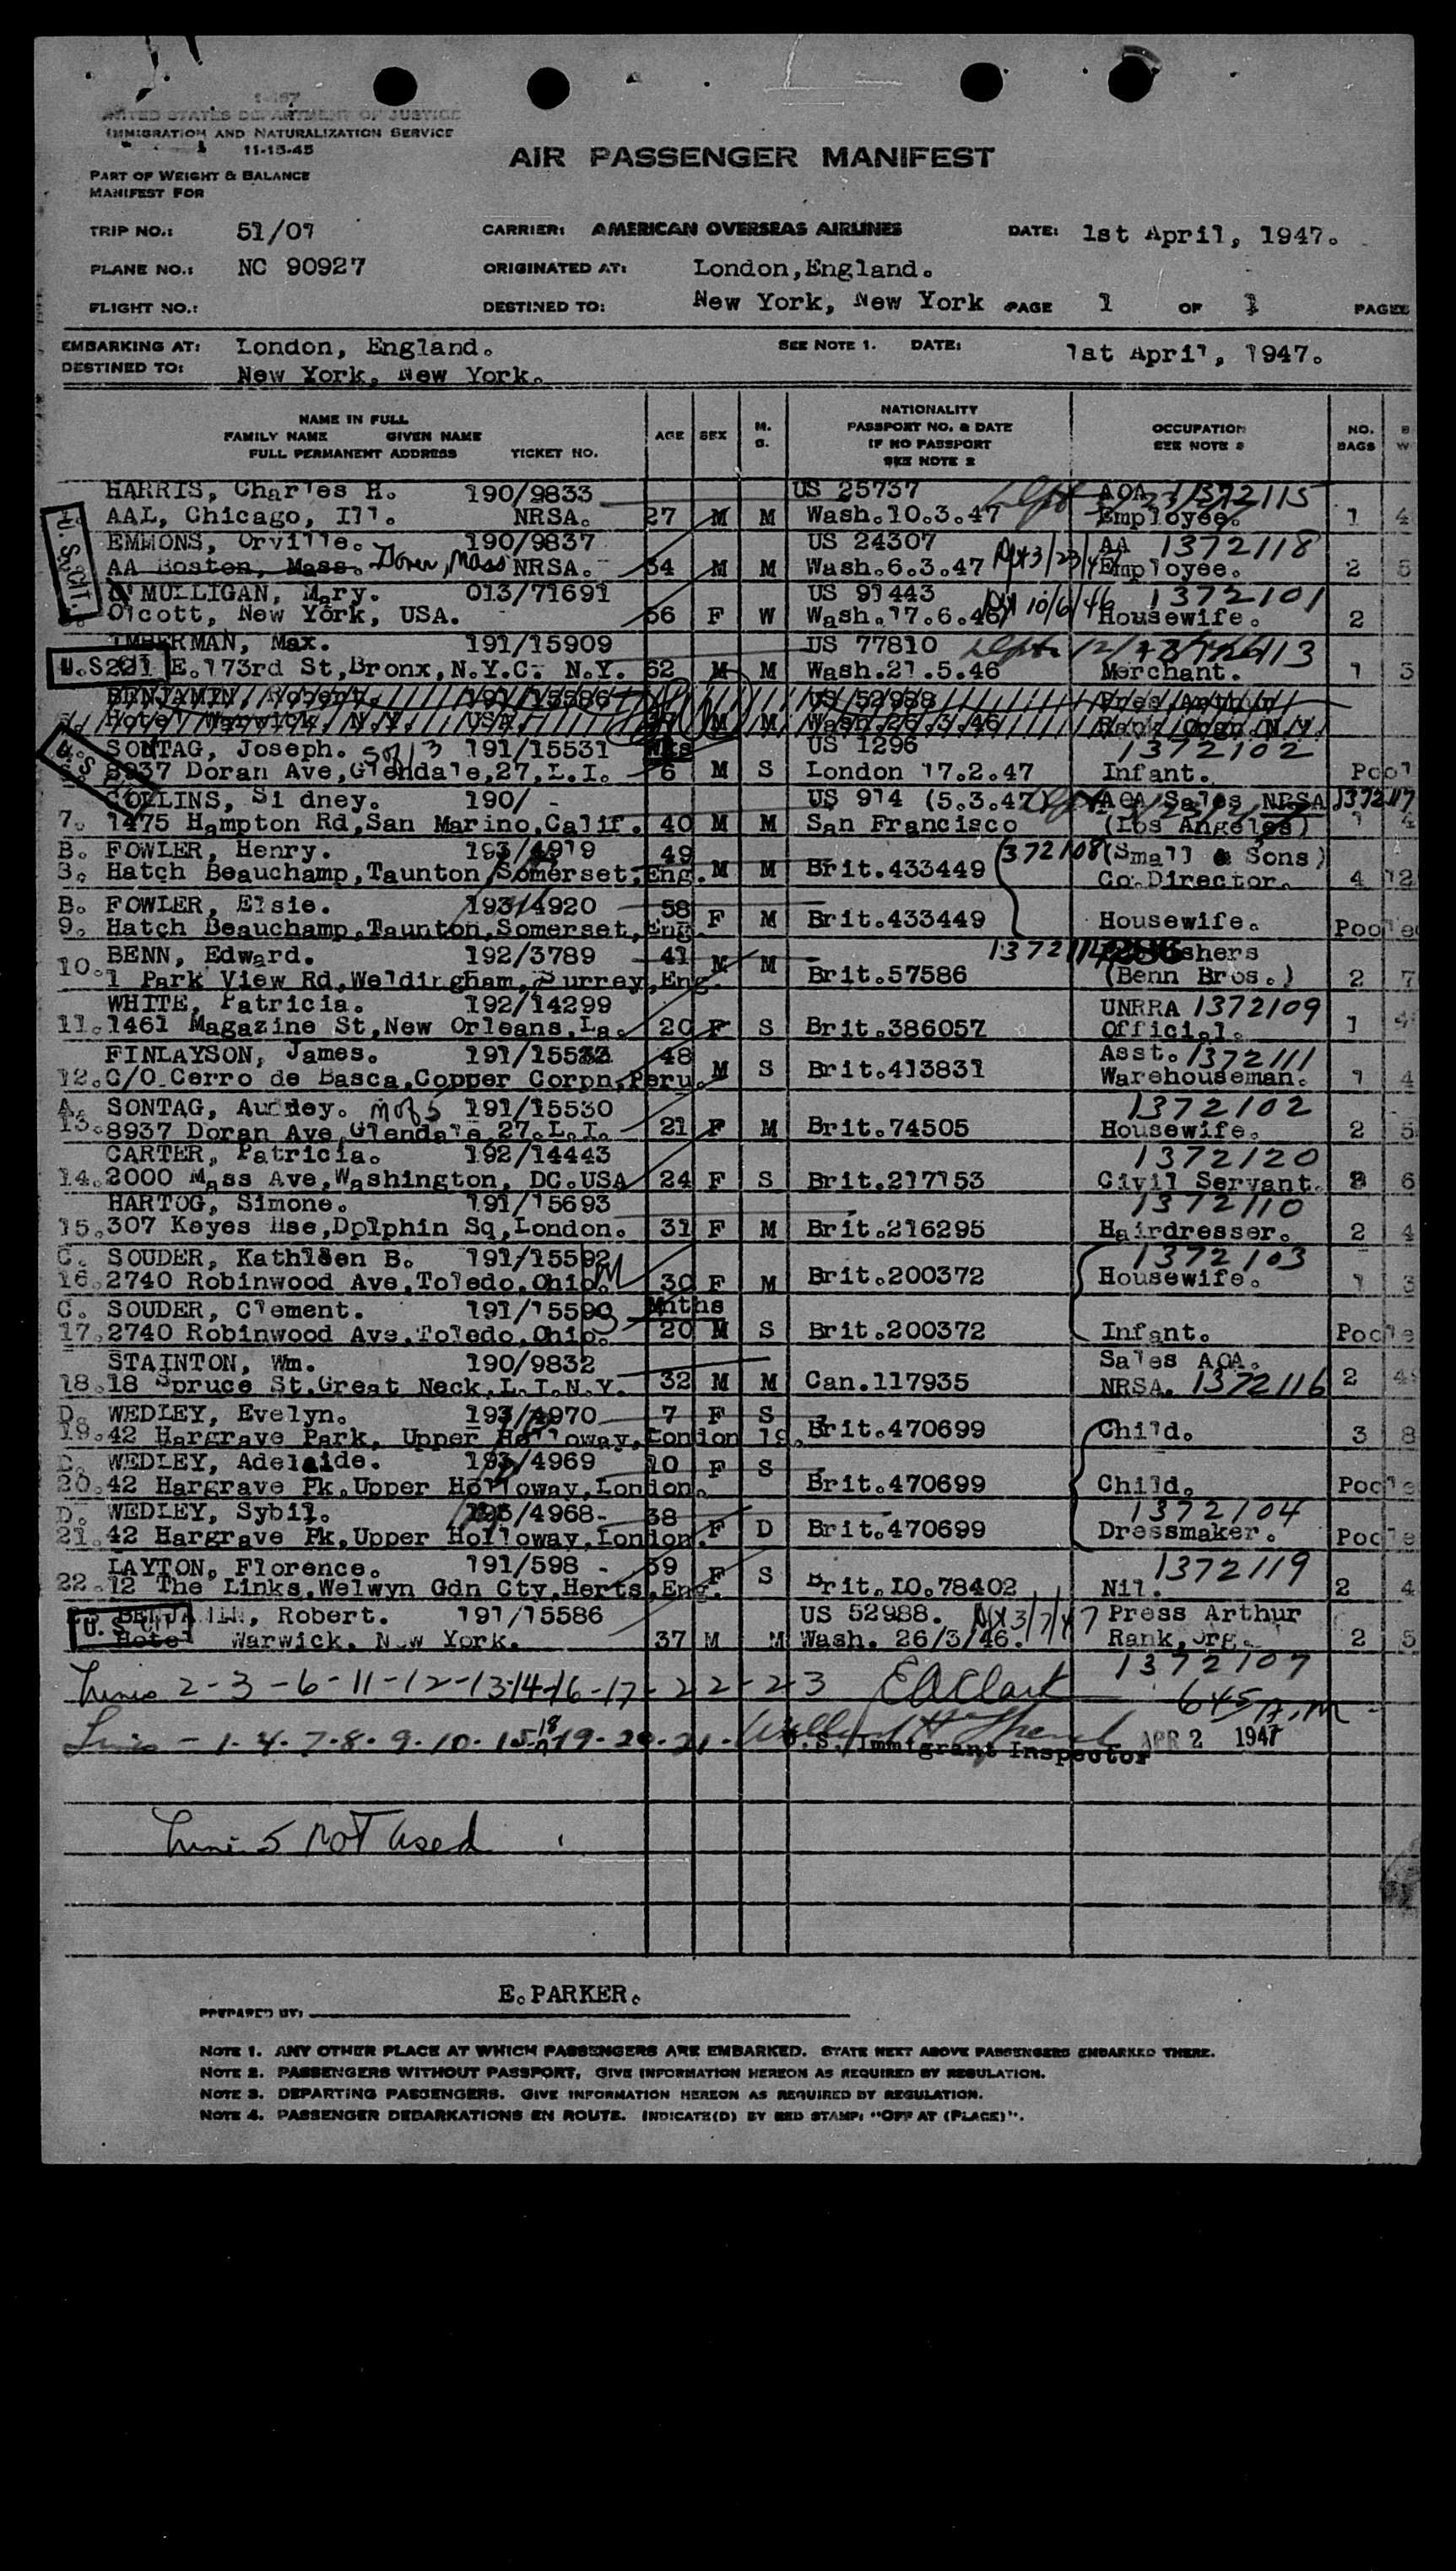 UNITED STATES DEPARTMENT OF JUSTICE
IMMIGRATION AND NATURALIZATION SERVICE
11-15-45
AIR PASSENGER MANIFEST
PART OF WEIGHT & BALANCE
MANIFEST FOR
TRIP NO.: 51/07 CARRIER: AMERICAN OVERSEAS AIRLINES DATE: 1st April, 1947.
PLANE NO.: NC 90927 ORIGINATED AT: London,England.
FLIGHT NO.: DESTINED TO: New York, New York PAGE 1 OF 1 PAGES
EMBARKING AT: London, England. SEE NOTE 1. DATE: 1st April, 1947.
DESTINED TO: New York, New York.
NAME IN FULL
FAMILY NAME GIVEN NAME
FULL PERMANENT ADDRESS TICKET NO. AGE SEX M. S. NATIONALITY PASSPORT NO. & DATE IF NO PASSPORT SEE NOTE 2 OCCUPATION SEE NOTE 3 NO. BAGS
HARRIS, Charles H. 190/9833 US 25737 AOA 1372115
AAL, Chicago, Ill. NRSA. 27 M M Wash.10.3.47 Employee. 1 4
EMMONS, Orville. 190/9837 US 24307 AA 1372118
AA Boston, Mass. Dover, Mass NRSA. 34 M M Wash.6.3.47 3/23/47 Employee. 2 5
MULLIGAN, Mary. 013/71691 US 91443 10/6/46 1372101
Olcott, New York, USA. 56 F W Wash.17.6.46 Housewife. 2
IMBERMAN, Max. 191/15909 US 77810
U.S. E.173rd St,Bronx,N.Y.C. N.Y. 62 M M Wash.21.5.46 Merchant. 1 5
BENJAMIN, Robert. 191/15586 US 52988
Hotel Warwick, N.Y. USA. 37 M M Wash.26.3.46
SONTAG, Joseph. 191/15531 Mts US 1296 1372102
8937 Doran Ave,Glendale,27,L.I. 6 M S London 17.2.47 Infant. Pool
COLLINS, Si dney. 190/ - US 914 (5.3.47) AOA Sales NRSA 1372117
7. 1475 Hampton Rd,San Marino,Calif. 40 M M San Francisco (Los Angeles) 1 4
B. FOWLER, Henry. 193/4919 49 1372108 (Small & Sons)
8. Hatch Beauchamp,Taunton,Somerset,Eng. M M Brit.433449 Co.Director. 4 12
B. FOWLER, Elsie. 193/4920 58
9. Hatch Beauchamp,Taunton,Somerset,Eng. F M Brit.433449 Housewife. Poole
BENN, Edward. 192/3789 41
10. 1 Park View Rd,Weldingham,Surrey,Eng. M M Brit.57586 (Benn Bros.) 2 7
WHITE, Patricia. 192/14299 UNRRA 1372109
11. 1461 Magazine St,New Orleans,La. 20 F S Brit.386057 Official. 1 4
FINLAYSON, James. 191/15532 48 Asst. 1372111
12. C/O Cerro de Basca,Copper Corpn,Peru. M S Brit.413831 Warehouseman. 1 4
A. SONTAG, Audrey. 191/15530 1372102
13. 8937 Doran Ave,Glendale,27.L.I. 21 F M Brit.74505 Housewife. 2 5
CARTER, Patricia. 192/14443 1372120
14. 2000 Mass Ave,Washington, DC.USA 24 F S Brit.217153 Civil Servant. 6
HARTOG, Simone. 191/15693 1372110
15. 307 Keyes Hse,Dolphin Sq,London. 31 F M Brit.216295 Hairdresser. 2 4
C. SOUDER, Kathleen B. 191/15592 M 1372103
16. 2740 Robinwood Ave,Toledo,Ohio. 30 F M Brit.200372 Housewife. 1 3
C. SOUDER, Clement. 191/15593 Mnths
17. 2740 Robinwood Ave,Toledo,Ohio. 20 M S Brit.200372 Infant. Poole
STAINTON, Wm. 190/9832 Sales AOA.
18. 18 Spruce St.Great Neck,L.I.N.Y. 32 M M Can.117935 NRSA. 1372116 2 4
D. WEDLEY, Evelyn. 193/4970 7 F S
19. 42 Hargrave Park, Upper Holloway,London 19. Brit.470699 Child. 3 8
D. WEDLEY, Adelaide. 193/4969 10 F S
20. 42 Hargrave Pk.Upper Holloway,London. Brit.470699 Child. Poole
D. WEDLEY, Sybil. 193/4968- 38 1372104
21. 42 Hargrave Pk,Upper Holloway,London. F D Brit.470699 Dressmaker. Poole
LAYTON, Florence. 191/598 - 39 1372119
22. 12 The Links,Welwyn Gdn Cty,Herts,Eng. F S Brit.LO.78402 Nil. 2 4
BENJAMIN, Robert. 191/15586 US 52988. 3/7/47 Press Arthur
Hotel Warwick. New York. 37 M M Wash. 26/3/46. Rank,Org. 2 5
1372107
Lines 2-3-6-11-12-13-14-16-17-22-23 E A Clark 645 A.M
Lines - 1-4-7-8-9-10-15-18-19-20-21
U.S. Immigrant Inspector APR 2 1947
Line 5 not used
E.PARKER.
PREPARED BY:
NOTE 1. ANY OTHER PLACE AT WHICH PASSENGERS ARE EMBARKED. STATE NEXT ABOVE PASSENGERS EMBARKED THERE.
NOTE 2. PASSENGERS WITHOUT PASSPORT, GIVE INFORMATION HEREON AS REQUIRED BY REGULATION.
NOTE 3. DEPARTING PASSENGERS. GIVE INFORMATION HEREON AS REQUIRED BY REGULATION.
NOTE 4. PASSENGER DEBARKATIONS EN ROUTE. INDICATE(D) BY RED STAMP: "OFF AT (PLACE)".